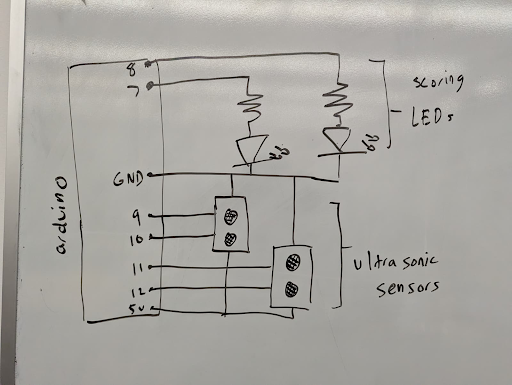 8
7
scoring
LEDs
GND
arduino
9
10
11
12
5v
ultrasonic
sensors